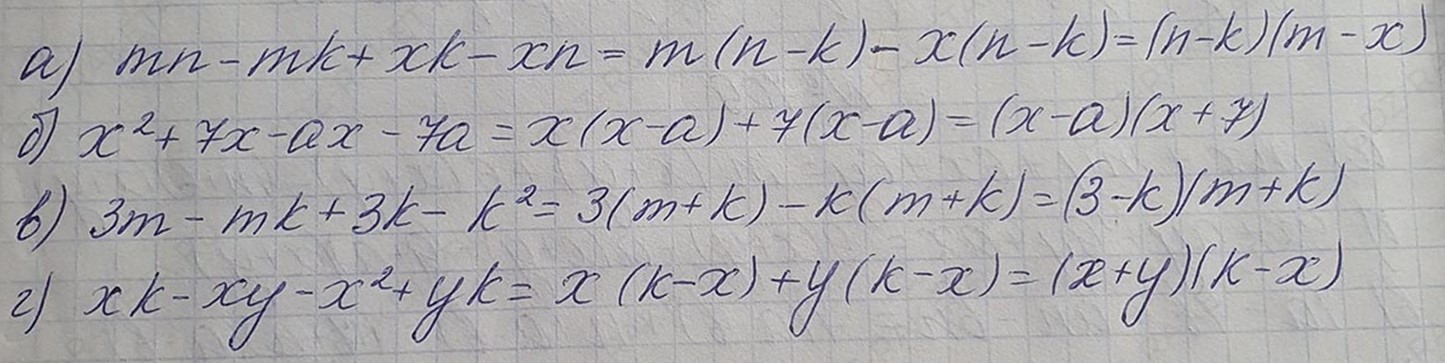 а) mn - mk + xk - xn = m(n - k) - x(n - k) = (n - k)(m - x)
б) x² + 7x - ax - 7a = x(x - a) + 7(x - a) = (x - a)(x + 7)
в) 3m - mk + 3k - k² = 3(m + k) - k(m + k) = (3 - k)(m + k)
г) xk - xy - x² + yk = x(k - x) + y(k - x) = (x + y)(k - x)